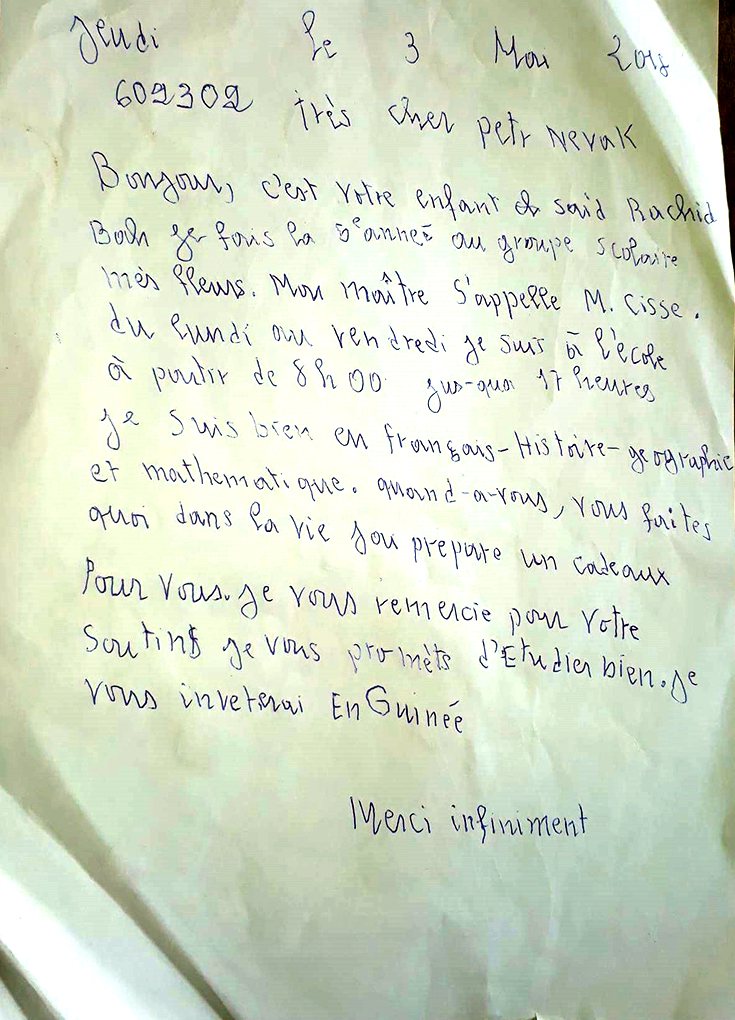 Jeudi le 3 Mai 2018
602302 très cher petr Nevak
Bonjour, c'est votre enfant said Rachid
Bah je fais la 5e année au groupe scolaire
mes fleurs. Mon maître s'appelle M. Cisse.
du lundi au vendredi je suis à l'école
à partir de 8h00 jus-qua 17 heures
je suis bien en français-Histoire-geographie
et mathematique. quand-a-vous, vous faites
quoi dans la vie jou prepare un cadeaux
Pour vous. je vous remercie pour votre
soutins je vous promèts d'Etudier bien. je
vous inveterai En Guinée
Merci infiniment